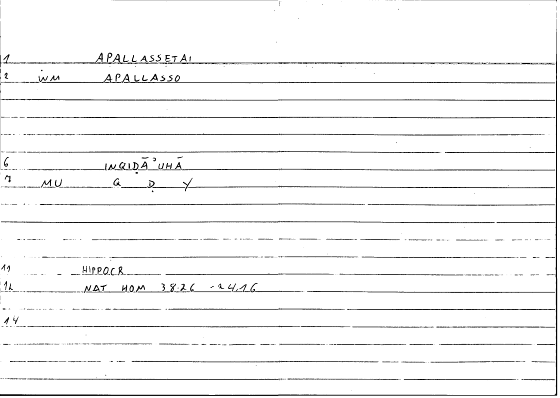 1 APALLASSETAI
2 WM APALLASSO
6 INQIḌĀʾUHĀ
7 MU Q Ḍ Y
11 HIPPOCR
12 NAT HOM 38.26 - 24.16
14